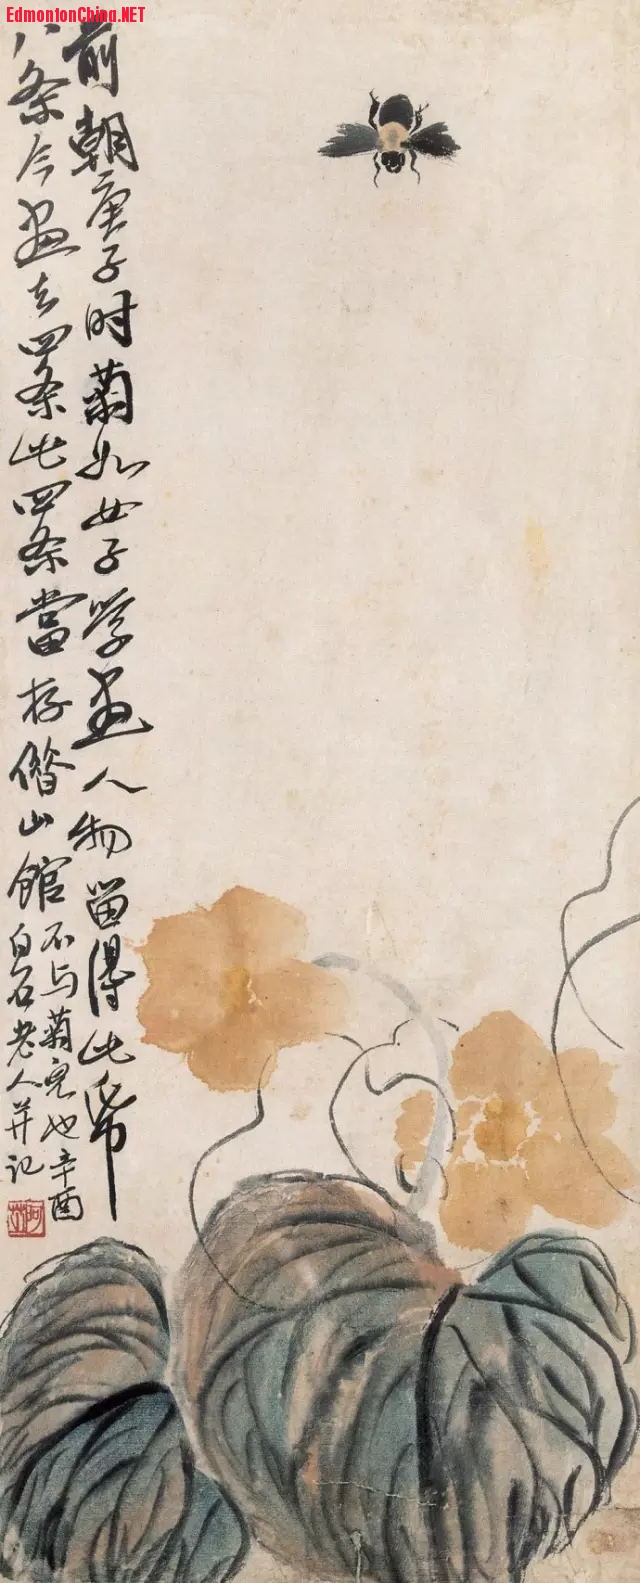 EdmontonChina.NET
前朝庚子时菊如女子学画人物留得此纸
八条今画去四条此四条當存借山館
不与菊儿也辛酉
白石老人并记